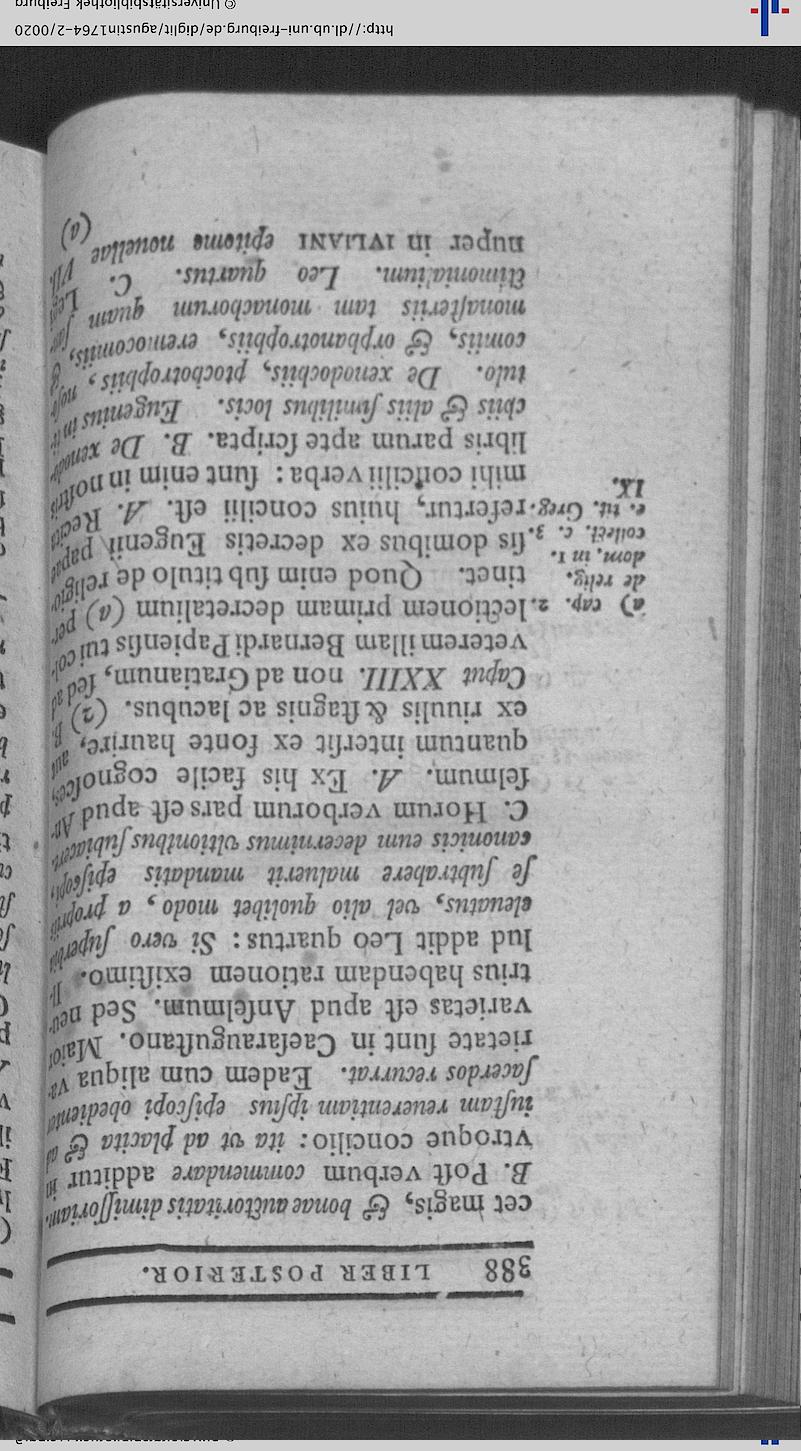 388 LIBER POSTERIOR.
cet magis, & bonae auctoritatis dimiſſoriam.
B. Poſt verbum commendare additur in
vtroque concilio: ita vt ad placita & ad
iuſtam reuerentiam ipſius epiſcopi obediente
ſacerdos recurrat. Eadem cum aliqua va-
rietate ſunt in Caeſarauguſtano. Maior
varietas eſt apud Anſelmum. Sed neu-
trius habendam rationem exiſtimo.
lud addit Leo quartus: Si vero ſuperbia
eleuatus, vel alio quolibet modo, a propriis
ſe ſubtrahere maluerit mandatis epiſcopi,
canonicis eum decernimus vltionibus ſubiacere.
C. Horum verborum pars eſt apud An-
ſelmum. A. Ex his facile cognoſces,
quantum interſit ex fonte haurire, aut
ex riuulis & ſtagnis ac lacubus. (2) B.
Caput XXIII. non ad Gratianum, ſed ad
veterem illam Bernardi Papienſis tui col-
lectionem primam decretalium (a) per-
tinet. Quod enim ſub titulo de religio-
ſis domibus ex decretis Eugenii papae
refertur, huius concilii eſt. A. Recita
mihi concilii verba: ſunt enim in noſtris
libris parum apte ſcripta. B. De xenodo-
chiis & aliis ſimilibus locis. Eugenius in
tulo. De xenodochiis, ptochotrophiis, noſo-
comiis, & orphanotrophiis, eremocomiis,
monaſteriis tam monachorum quam
ctimonialium. Leo quartus. C.
nuper in IVLIANI epitome nouellae
(a)
a) cap. 2.
de relig.
dom. in 1.
collect. c. 3.
e. tit. Greg.
IX.
http://dl.ub.uni-freiburg.de/diglit/augustin1764-2/0020
© Universitätsbibliothek Freiburg